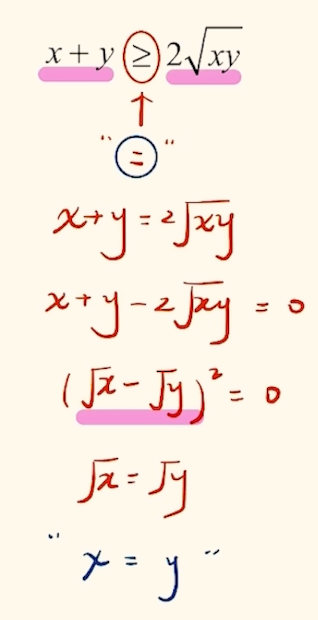 x + y ≥ 2√xy
↑
" = "
x+y = 2√xy
x+y-2√xy = 0
(√x - √y)² = 0
√x = √y
" x = y "